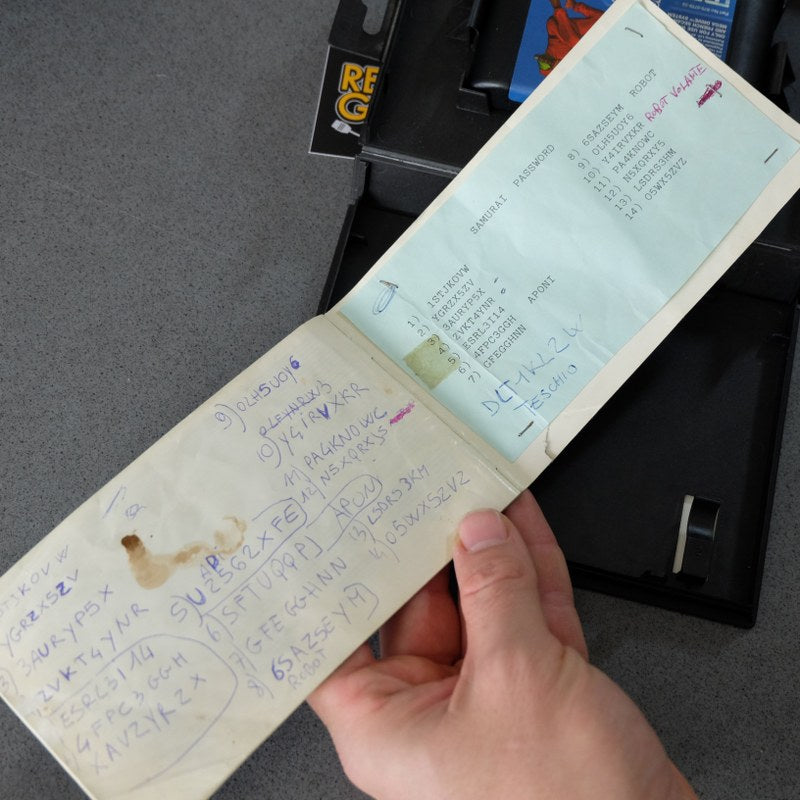 SAMURAI PASSWORD
1) 1STJKOVW
2) YGRZX5ZV
3) 3AURYP5X
4) 2VKT4YNR
5) ESRL3I14
6) 4FPC3GGH
7) GFEGGHNN APONI
8) 6SAZSEYM ROBOT
9) OLH5UOY6 ROBOT VOLANTE
10) Y4IRVXKR
11) PA4KNOWC
12) N5XQRXY5
13) LSDRS3HM
14) O5WX5ZVZ
TESCHIO
YGRZX5ZV
3AURYP5X
2VKT4YNR
ESRL3I14
4FPC3GGH
XAVZYRZX
5) U2S62XFE APONI
6) SFTUQQPJ
7) GFEGGHNN
8) 6SAZSEYM
ROBOT
9) OLH5UOY6
10) Y4IRVXKR
11) PA4KNOWC
12) N5XQRXY5
13) LSDRS3KM
O5WX5ZVZ